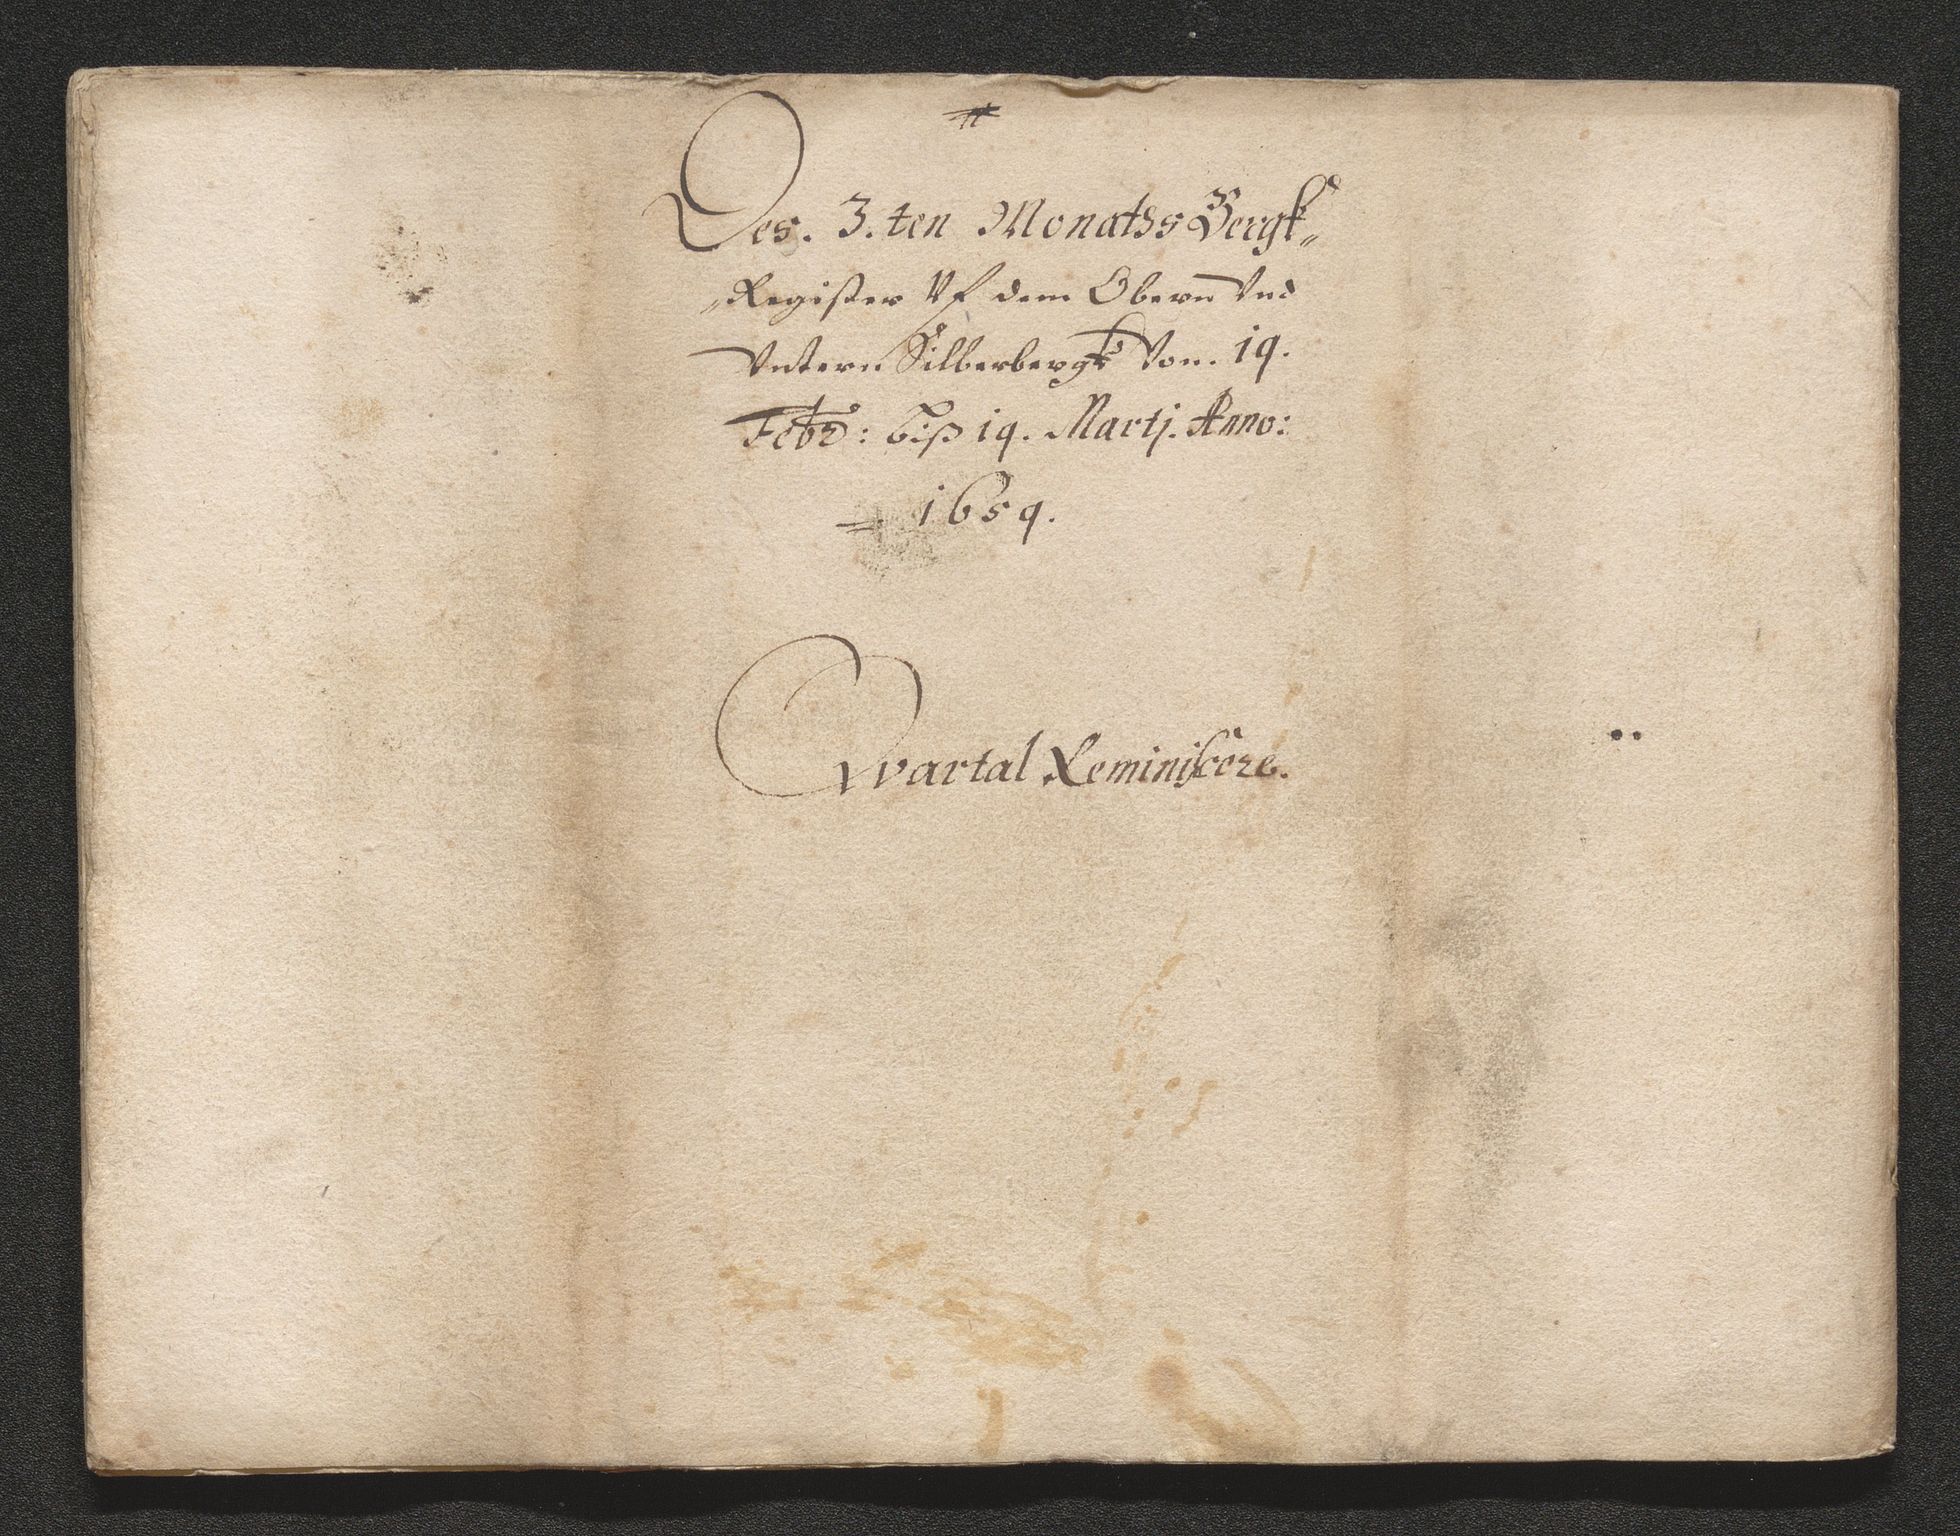 Des. 3.ten Monaths Bergk„
„Register Vf dem Obern Vnd
Vntern Silberbergk Von. 19.
Febr: biß 19. Martj. Anno:
1659.
Qvartal Reminiscere.